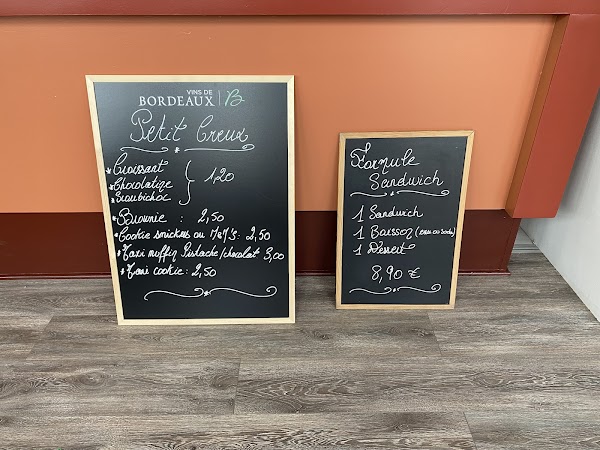 VINS DE
BORDEAUX
Petit Creux
Croissant
Chocolatine
1,20
Brownie : 2,50
Cookie smickers ou M&M'S : 2,50
Maxi muffin Pistache/chocolat 3,00
Maxi cookie : 2,50
Formule
Sandwich
1 Sandwich
1 Boisson (eau ou soda)
1 Dessert
8,90 €